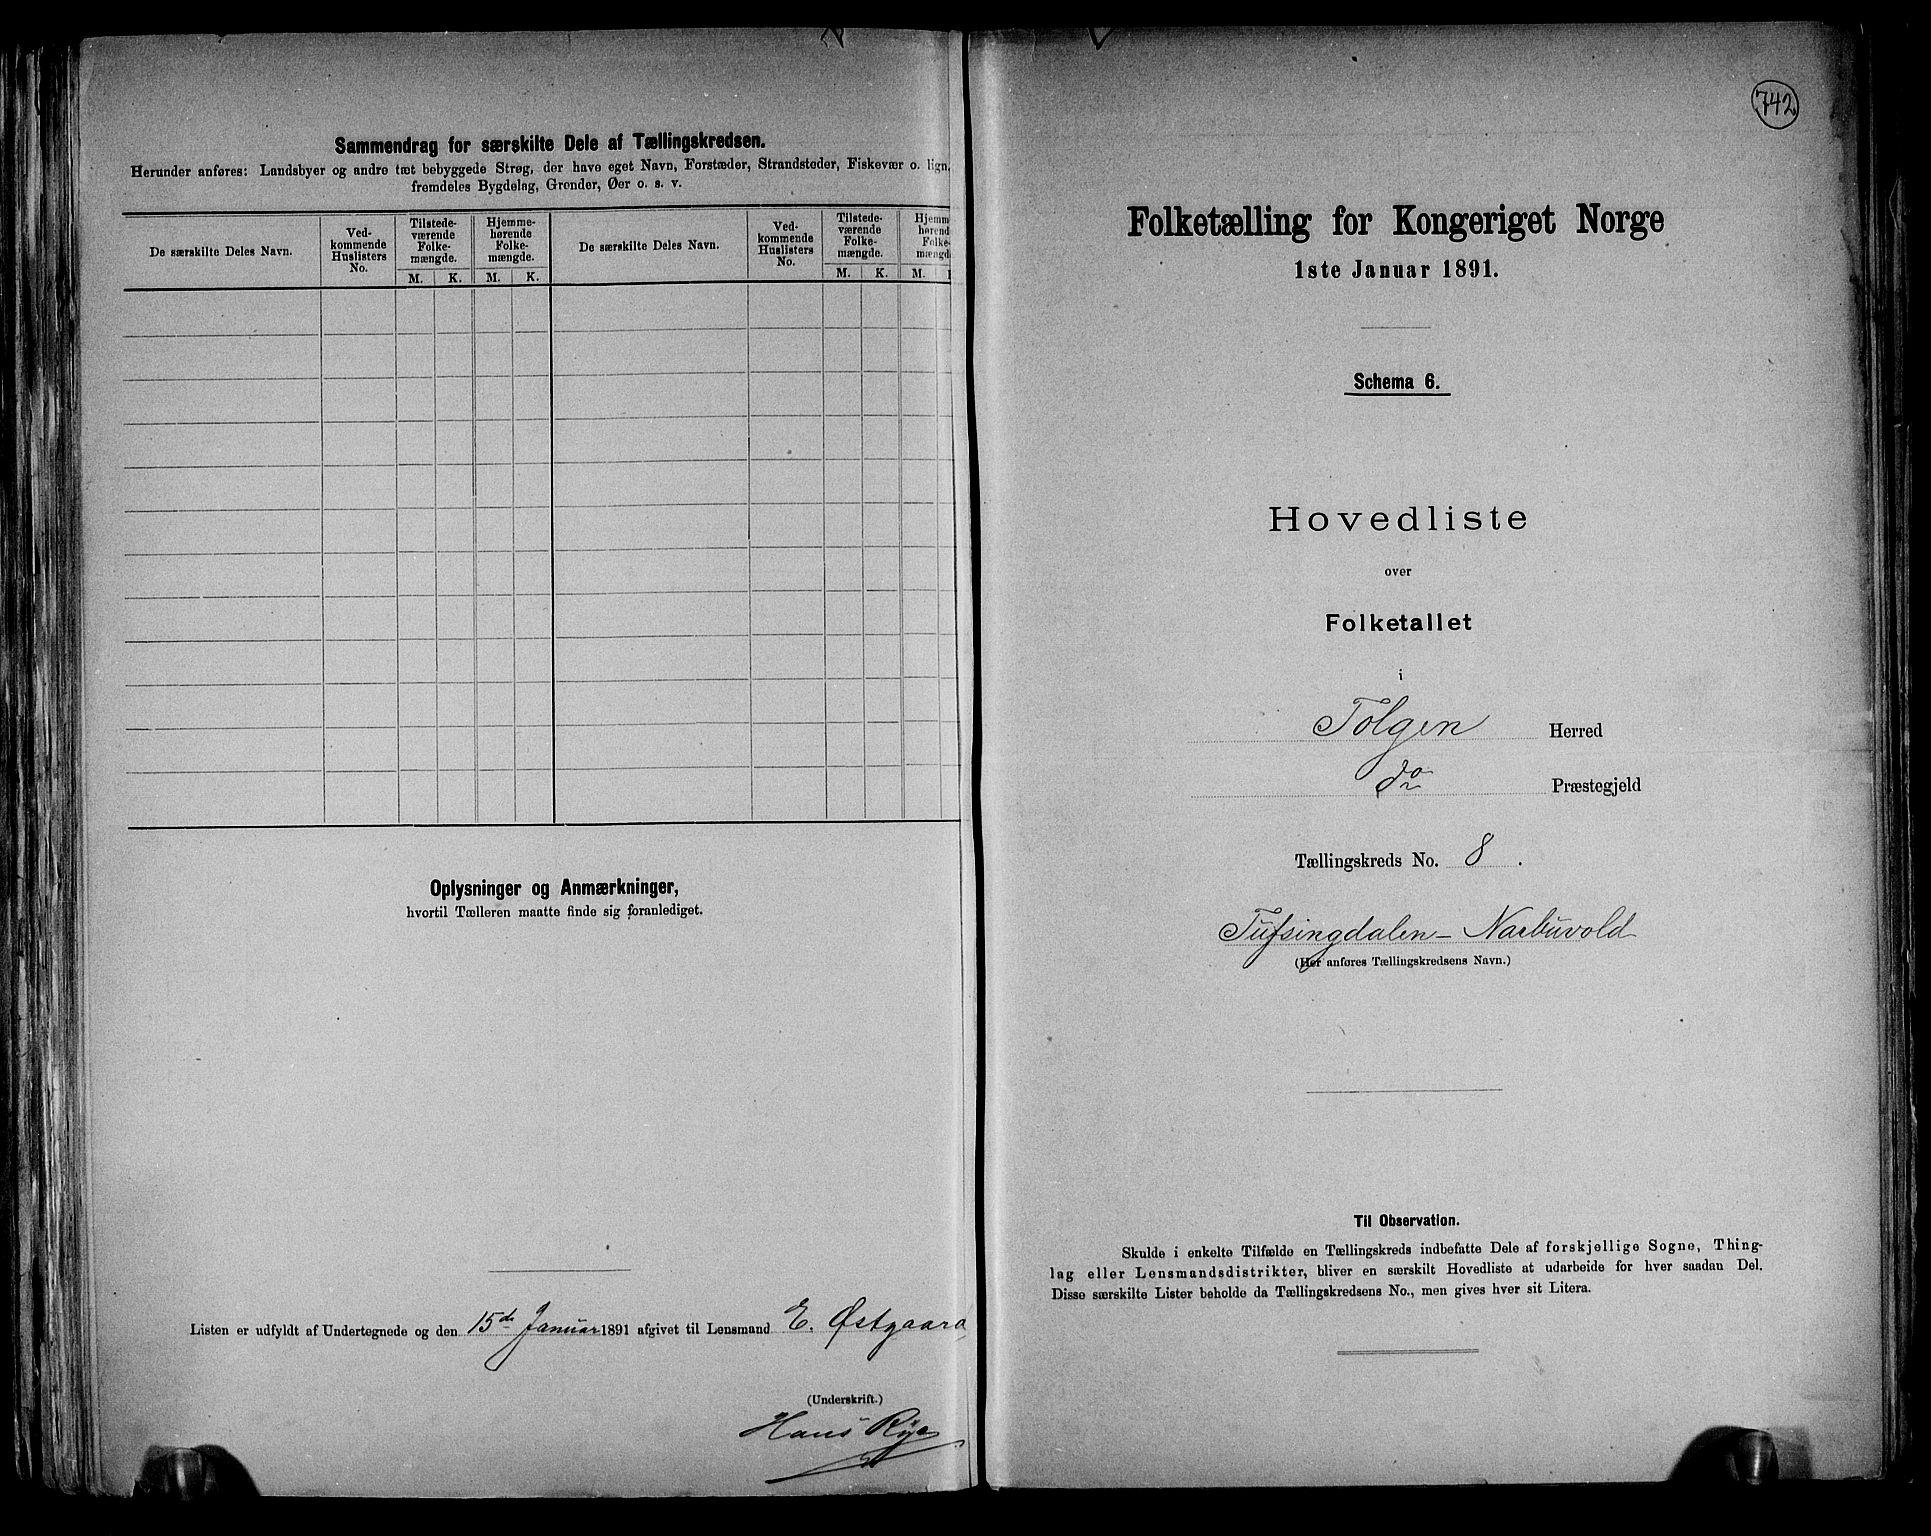 Sammendrag for særskilte Dele af Tællingskredsen.
Herunder anføres: Landsbyer og andre tæt bebyggede Strøg, der have eget Navn, Forstæder, Strandsteder, Fiskevær o. lign.
fremdeles Bygdelag, Grender, Øer o. s. v.
De særskilte Deles Navn.
Ved-
kommende
Huslisters
No.
Tilstede-
værende
Folke-
mængde.
M. K.
Hjemme-
hørende
Folke-
mængde.
M. K.
De særskilte Deles Navn.
Ved-
kommende
Huslisters
No.
Tilstede-
værende
Folke-
mængde.
M. K.
Hjemm
hørend
Folke-
mængd
M.
Oplysninger og Anmærkninger,
hvortil Tælleren maatte finde sig foranlediget.
Listen er udfyldt af Undertegnede og den 15de Januar 1891 afgivet til Lensmand E. Østgaard
(Underskrift.)
Hans Rye
742
Folketælling for Kongeriget Norge
1ste Januar 1891.
Schema 6.
Hovedliste
over
Folketallet
i
Tolgen Herred
do Præstegjeld
Tællingskreds No. 8.
Tufsingdalen - Narbuvold
(Her anføres Tællingskredsens Navn.)
Til Observation.
Skulde i enkelte Tilfælde en Tællingskreds indbefatte Dele af forskjellige Sogne, Thing-
lag eller Lensmandsdistrikter, bliver en særskilt Hovedliste at udarbeide for hver saadan Del.
Disse særskilte Lister beholde da Tællingskredsens No., men gives hver sit Litera.